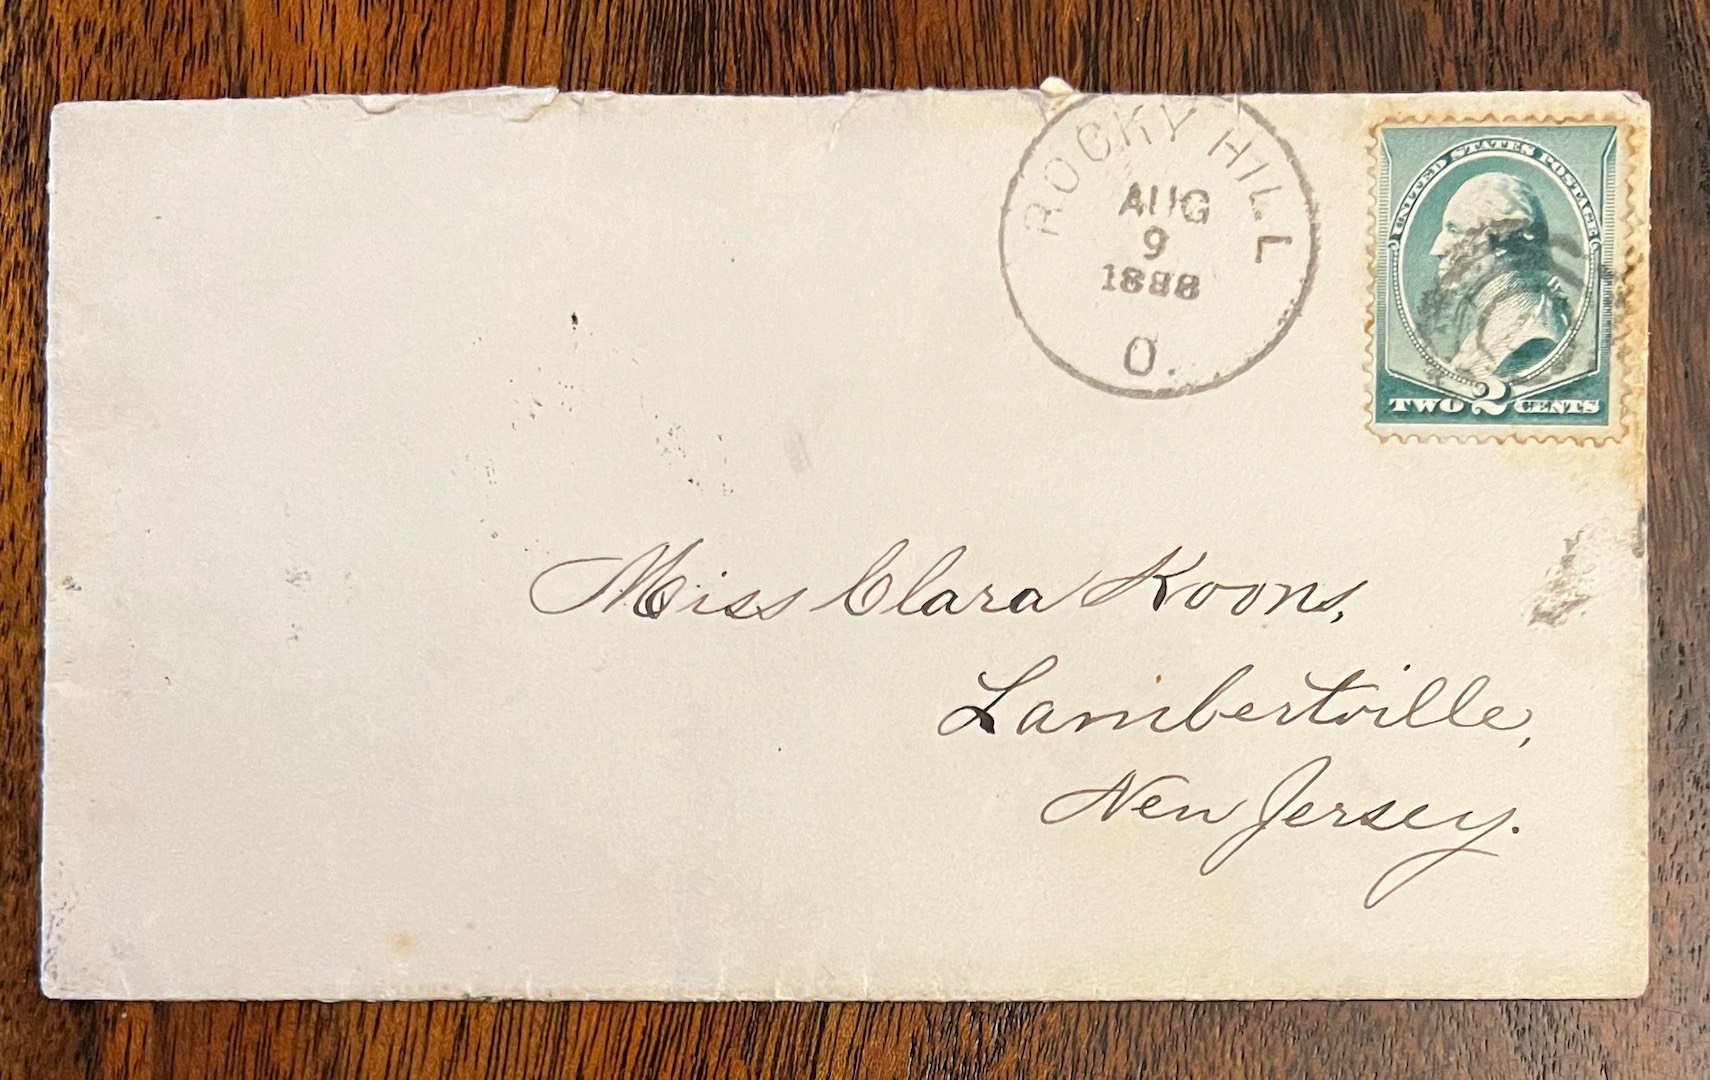 ROCKY HILL
AUG
9
1888
O.
UNITED STATES POSTAGE
TWO 2 CENTS
Miss Clara Koons,
Lambertville,
New Jersey.